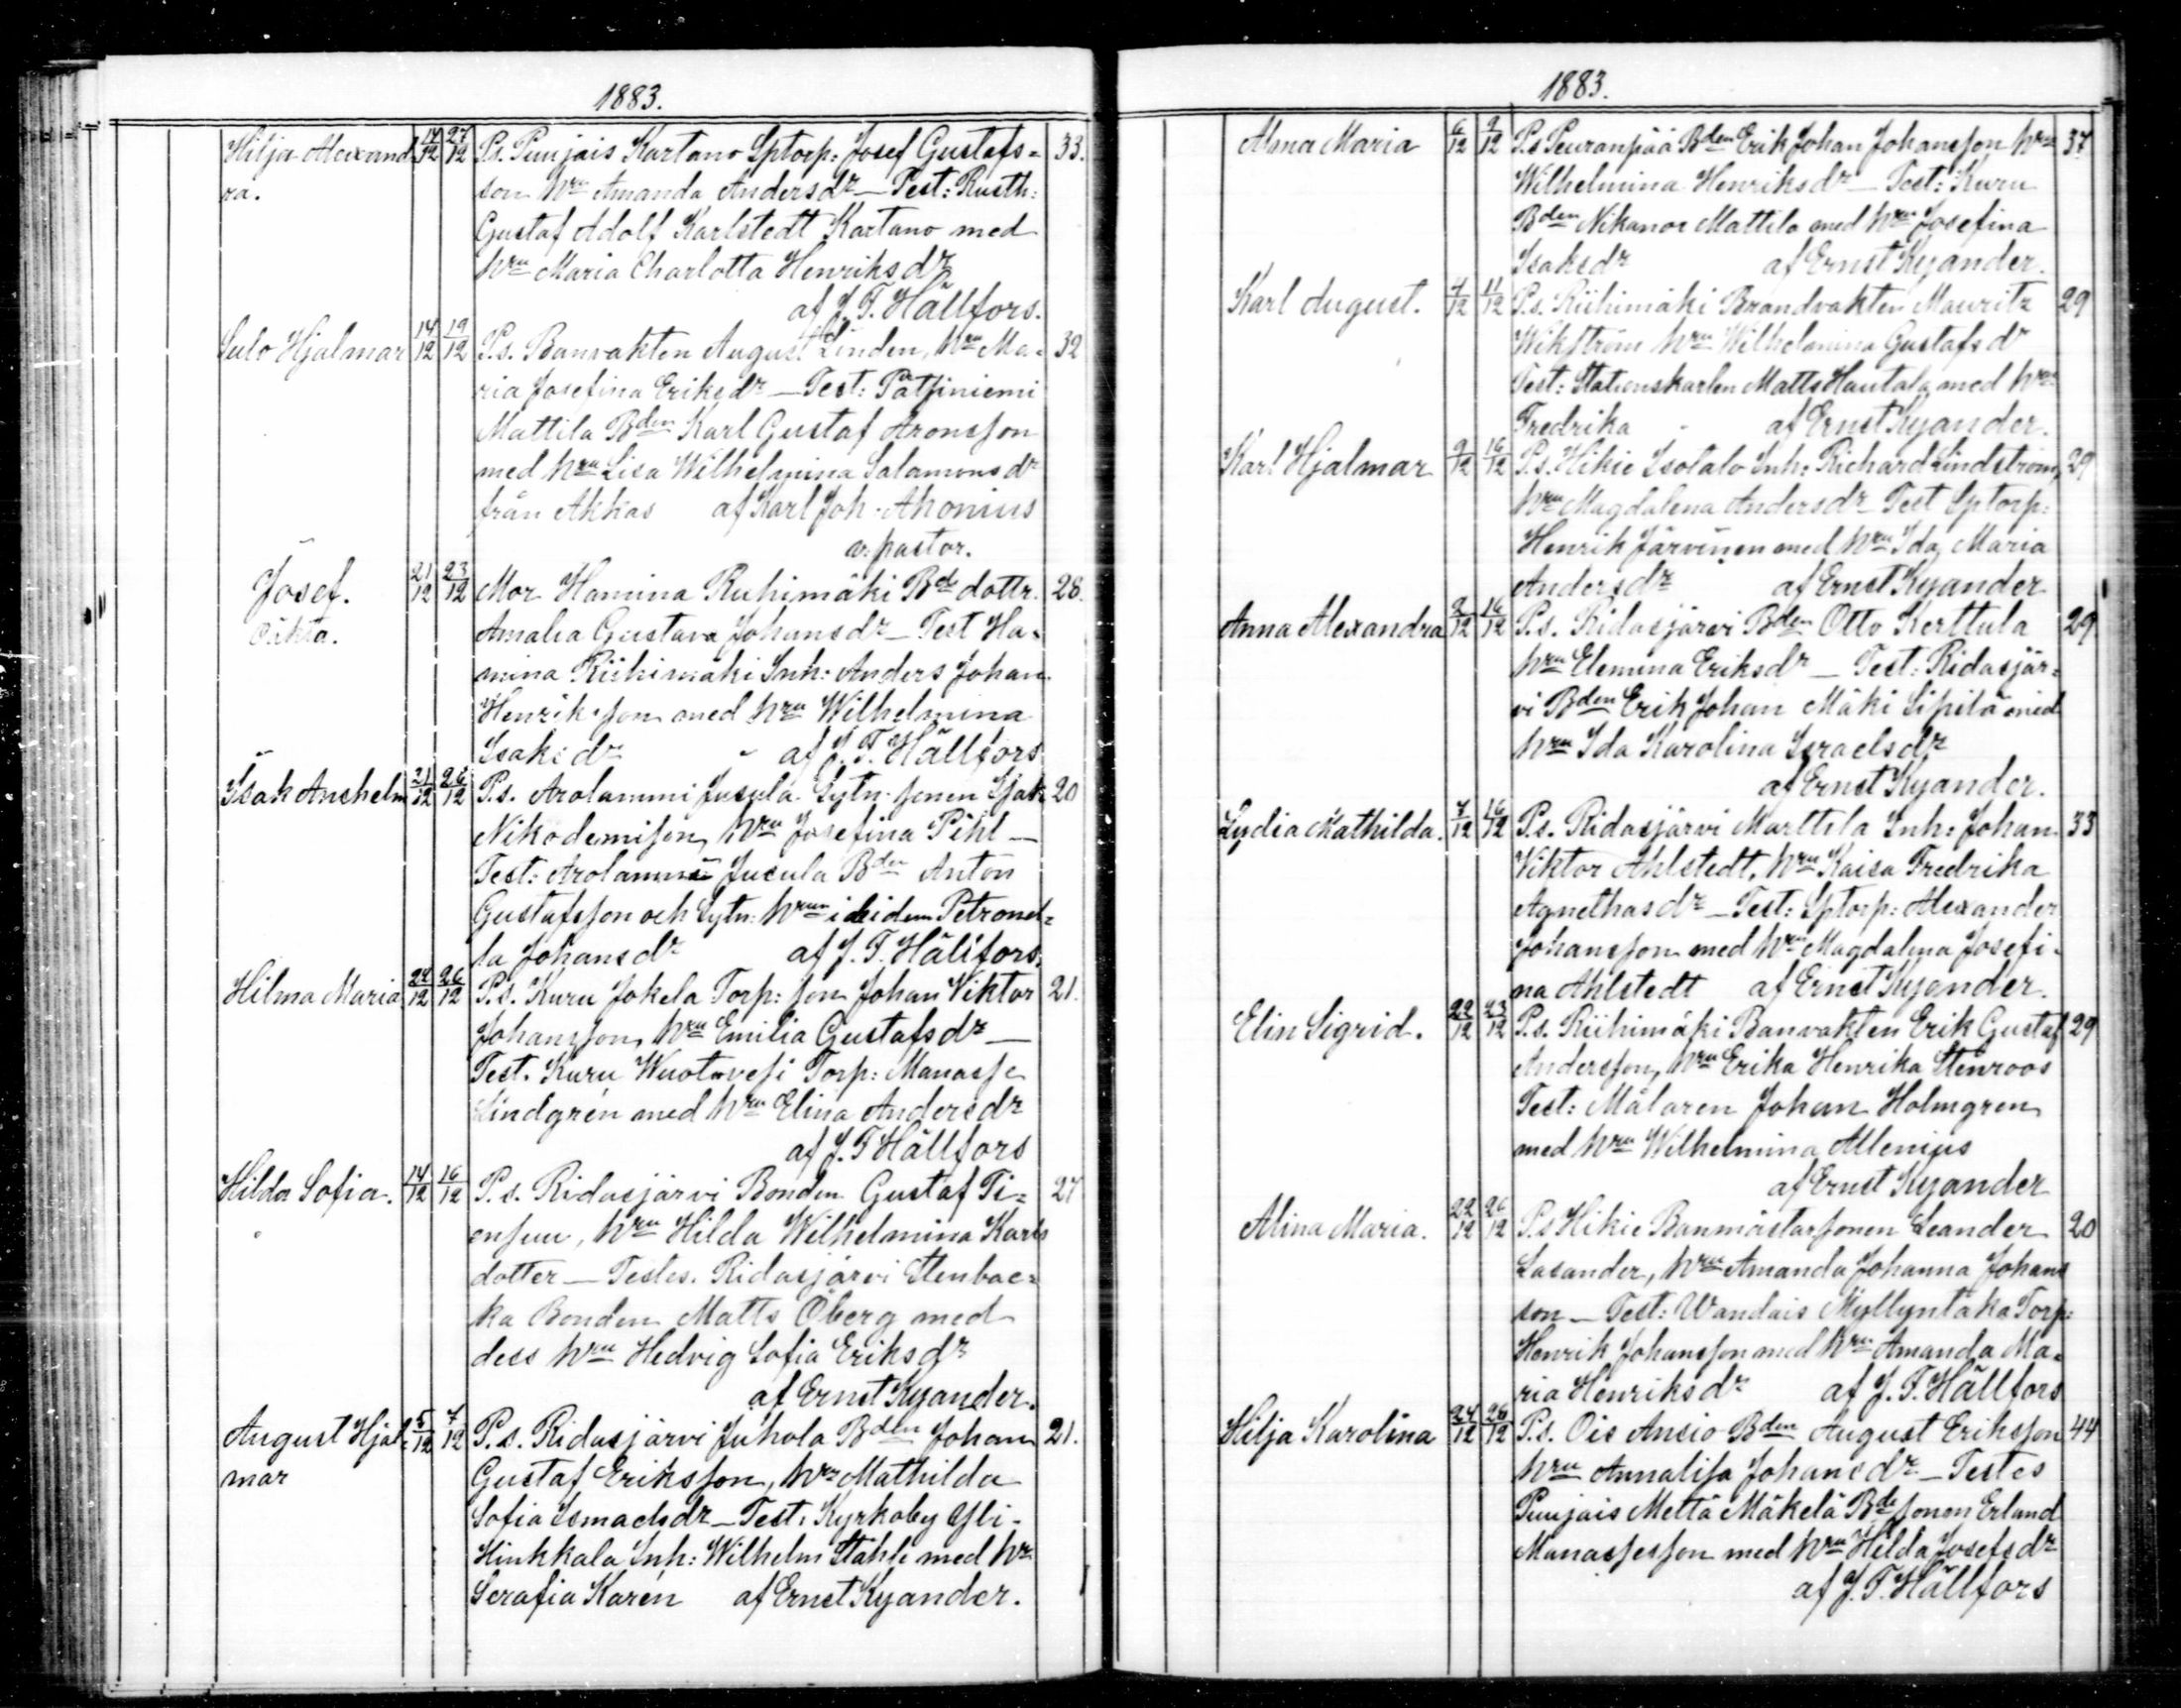 1883.
Hilja Alexand- 14/12 27/12 P.s. Punjais Kartano Sptorp: Josef Gustafs- 33.
ra. son hru Amanda Andersdr – Test: Rusth:
Gustaf Adolf Karlstedt Kartano med
hru Maria Charlotta Henriksdr
af J. F. Hällfors.
Sulo Hjalmar 14/12 19/12 P.s. Banvakten August Linden, hru Ma- 32
ria Josefina Eriksdr – Test: Patjiniemi
Mattila Bden Karl Gustaf Aronsson
med hru Lisa Wilhelmina Salamonsdr
från Akkas af Karl Joh. Ahonius
v. pastor.
Josef. 21/12 23/12 Mor Hamina Riihimäki Bde dottr. 28.
oäkta. Amalia Gustava Johansdr – Test Ha-
mina Riihimäki Inh: Anders Johan
Henriksson med hru Wilhelmina
Isaksdr af J. F. Hällfors
Isak Anshelm 21/12 26/12 P.s. Arolammi Jusula Sytn. sonen Isak 20
Nikodemisson, hru Josefina Pihl –
Test: Arolammi Jusula Bden Anton
Gustafsson och Sytn: hrun ibidem Petronel-
la Johansdr af J. F. Hällfors.
Hilma Maria 24/12 26/12 P.s. Kuru Jokela Torp: son Johan Viktor 21.
Johansson, hru Emilia Gustafsdr –
Test. Kuru Wuotavesi Torp: Manasse
Lindgrén med hru Elina Andersdr
af J. F. Hällfors
Hilda Sofia. 14/12 16/12 P.s. Ridasjärvi Bonden Gustaf Ti- 27
ensuu, hru Hilda Wilhelmina Karls
dotter – Testes. Ridasjärvi Stenbac-
ka Bonden Matts Öberg med
dess hru Hedvig Sofia Eriksdr
af Ernst Kyander.
August Hjal- 5/12 7/12 P.s. Ridasjärvi Juhola Bden Johan 21.
mar Gustaf Eriksson, hru Mathilda
Sofia Ismaelsdr – Test: Kyrkoby Yli-
Hinkkala Inh: Wilhelm Ståhle med hr
Serafia Karén af Ernst Kyander.
1883.
Alma Maria 6/12 9/12 P.s Peuranpää Bden Erik Johan Johansson hru 37
Wilhelmina Henriksdr – Test: Kuru
Bden Nikanor Mattila med hru Josefina
Isaksdr af Ernst Kyander.
Karl August. 4/12 11/12 P.s. Riihimäki Brandvakten Mauritz 29
Wikström hru Wilhelmina Gustafsdr
Test: Stationskarlen Matts Hautala med hru
Fredrika af Ernst Kyander.
Karl Hjalmar 9/12 16/12 P.s. Hikie Isotalo Inh: Richard Lindström, 29
hru Magdalena Andersdr Test Sptorp:
Henrik Järvinen med hru Ida Maria
Andersdr af Ernst Kyander
Anna Alexandra 2/12 16/12 P.s. Ridasjärvi Bden Otto Kerttula 29
hru Elemina Eriksdr – Test: Ridasjär-
vi Bden Erik Johan Mäki Sipilä med
hru Ida Karolina Israelsdr
af Ernst Kyander.
Lydia Mathilda. 7/12 16/12 P.s. Ridasjärvi Marttila Inh: Johan 33
Viktor Ahlstedt, hru Kaisa Fredrika
Agnethasdr – Test: Sptorp: Alexander
Johansson med hru Magdalena Josefi-
na Ahlstedt af Ernst Kyander.
Elin Sigrid. 22/12 23/12 P.s. Riihimäki Banvakten Erik Gustaf 29
Andersson, hru Erika Henrika Stenroos
Test: Målaren Johan Holmgren
med hru Wilhelmina Allenius
af Ernst Kyander
Alina Maria. 22/12 26/12 P.s Hikie Banmästarsonen Leander 20
Lasander, hru Amanda Johanna Johans
son – Test: Wandais Myllyntaka Torp:
Henrik Johansson med hru Amanda Ma-
ria Henriksdr af J. F. Hällfors
Hilja Karolina 24/12 26/12 P.s. Ois Ansio Bden August Eriksson 44
hru Annalisa Johansdr – Testes
Punjais Mettä Mäkelä Bde sonen Erland
Manassesson med hru Hilda Josefsdr
af J. F. Hällfors